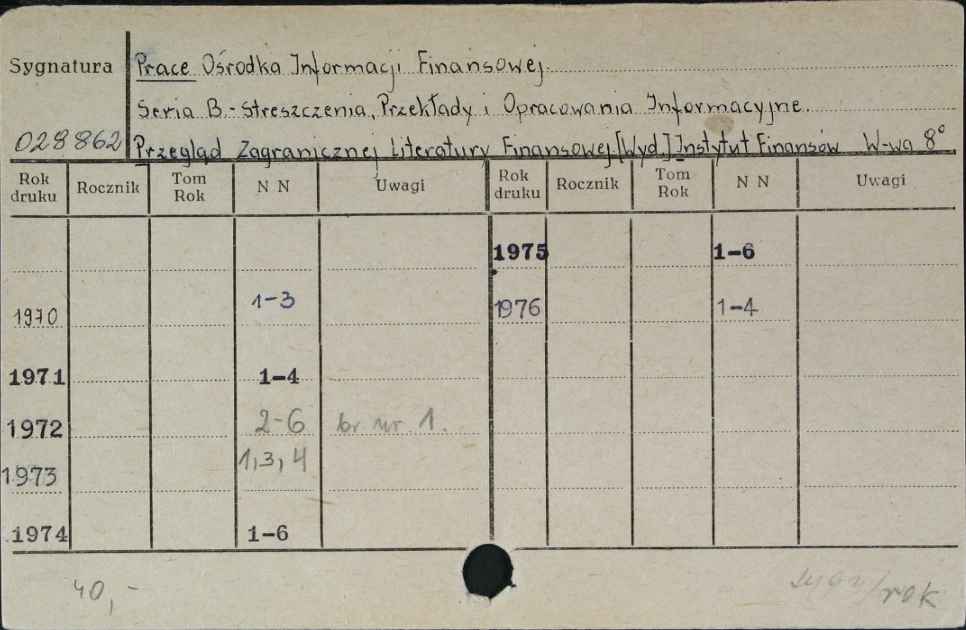 Sygnatura Prace Ośrodka Informacji Finansowej.
Seria B.-Streszczenia, Przekłady i Opracowania Informacyjne.
028862 Przegląd Zagranicznej Literatury Finansowej [Wyd.] Instytut Finansów W-wa 8°
Rok druku Rocznik Tom Rok N N Uwagi Rok druku Rocznik Tom Rok N N Uwagi
1975 1-6
1970 1-3 1976 1-4
1971 1-4
1972 2-6 br nr 1.
1973 1,3,4
1974 1-6
40,-
/rok